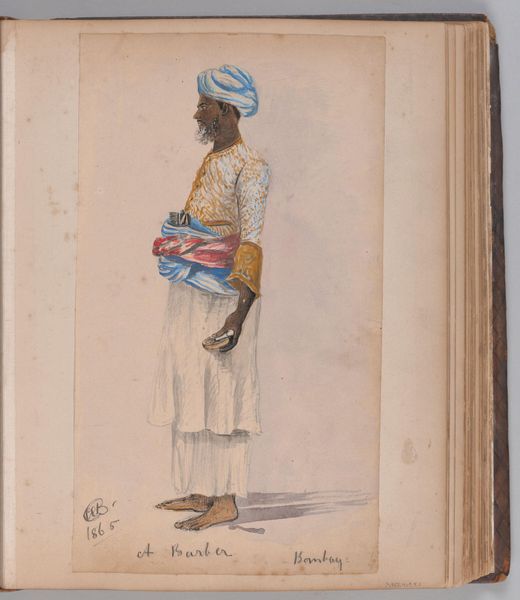 1865
A Barber Bombay.